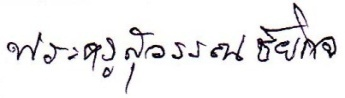 พระครูสุวรรณชัยกิจ